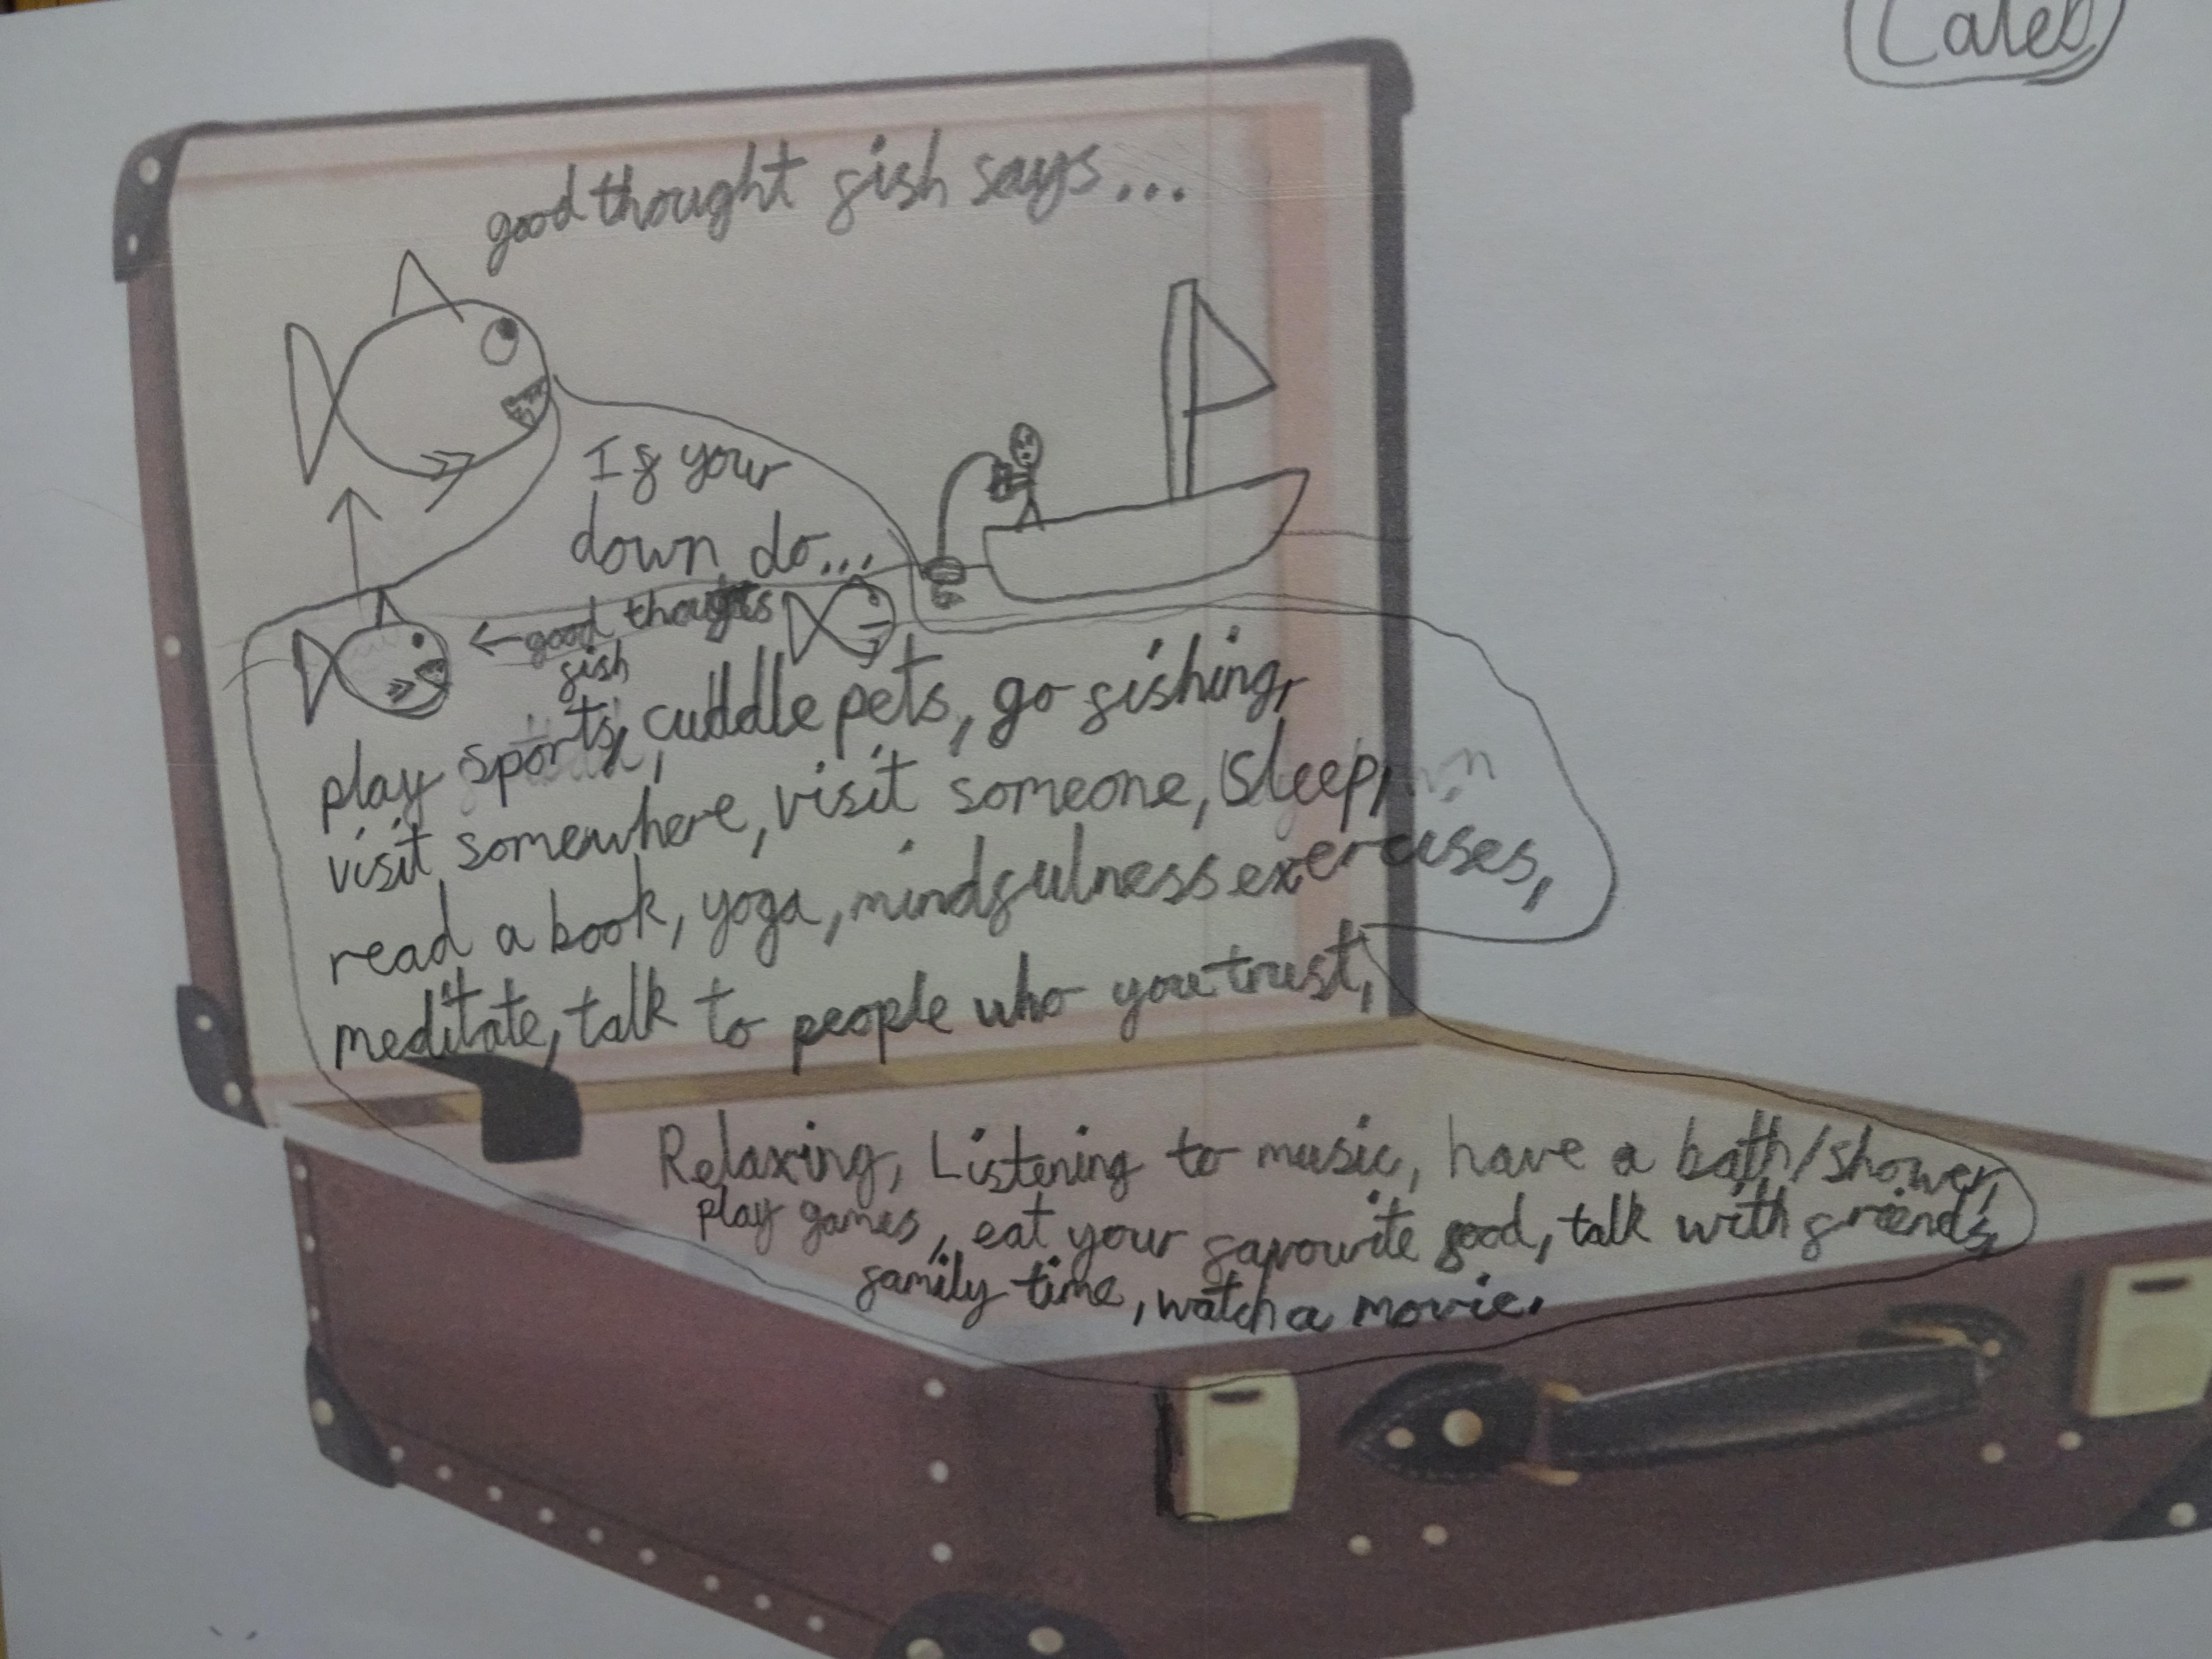 Caleb
good thought fish says...
If your
down do...
← good thoughts
fish
play sports, cuddle pets, go fishing,
visit somewhere, visit someone, sleep,
read a book, yoga, mindfulness exercises,
meditate, talk to people who you trust,
Relaxing, Listening to music, have a bath/shower,
play games, eat your favourite food, talk with friends,
family time, watch a movie.